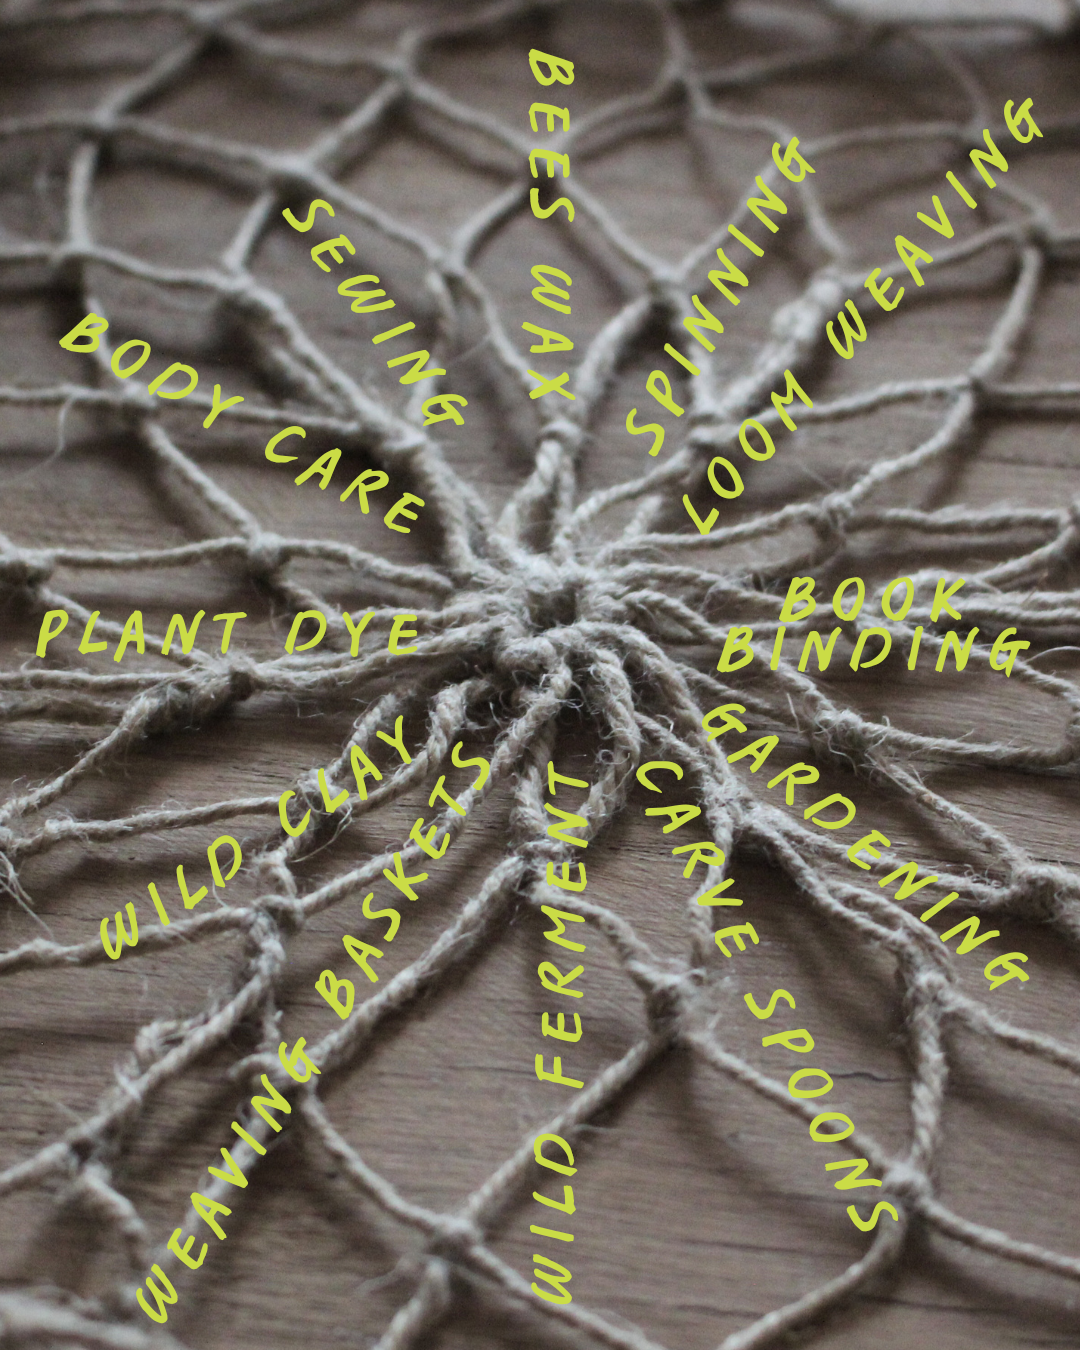 BEES WAX
SPINNING
LOOM WEAVING
BOOK
BINDING
GARDENING
CARVE SPOONS
WILD FERMENT
WEAVING BASKETS
WILD CLAY
PLANT DYE
BODY CARE
SEWING